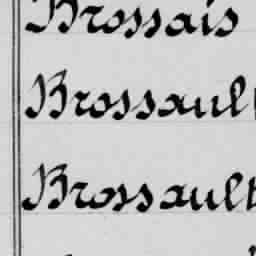 Brossais
Brossault
Brossault